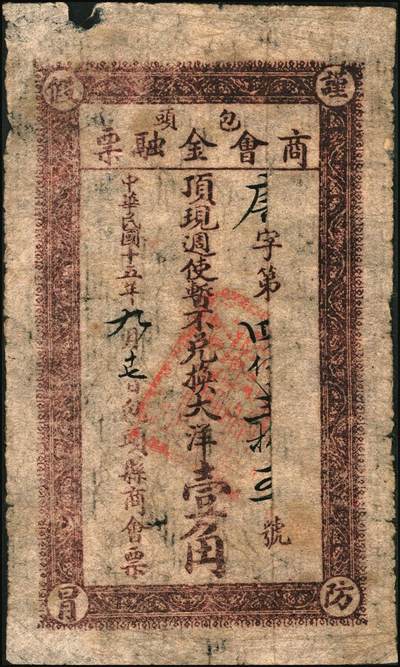 謹防假冒
包頭
商會金融票
字第四佰 拾 號
頂現週使暫不兌換大洋壹角
中華民國十五年九月十七日包頭縣商會票